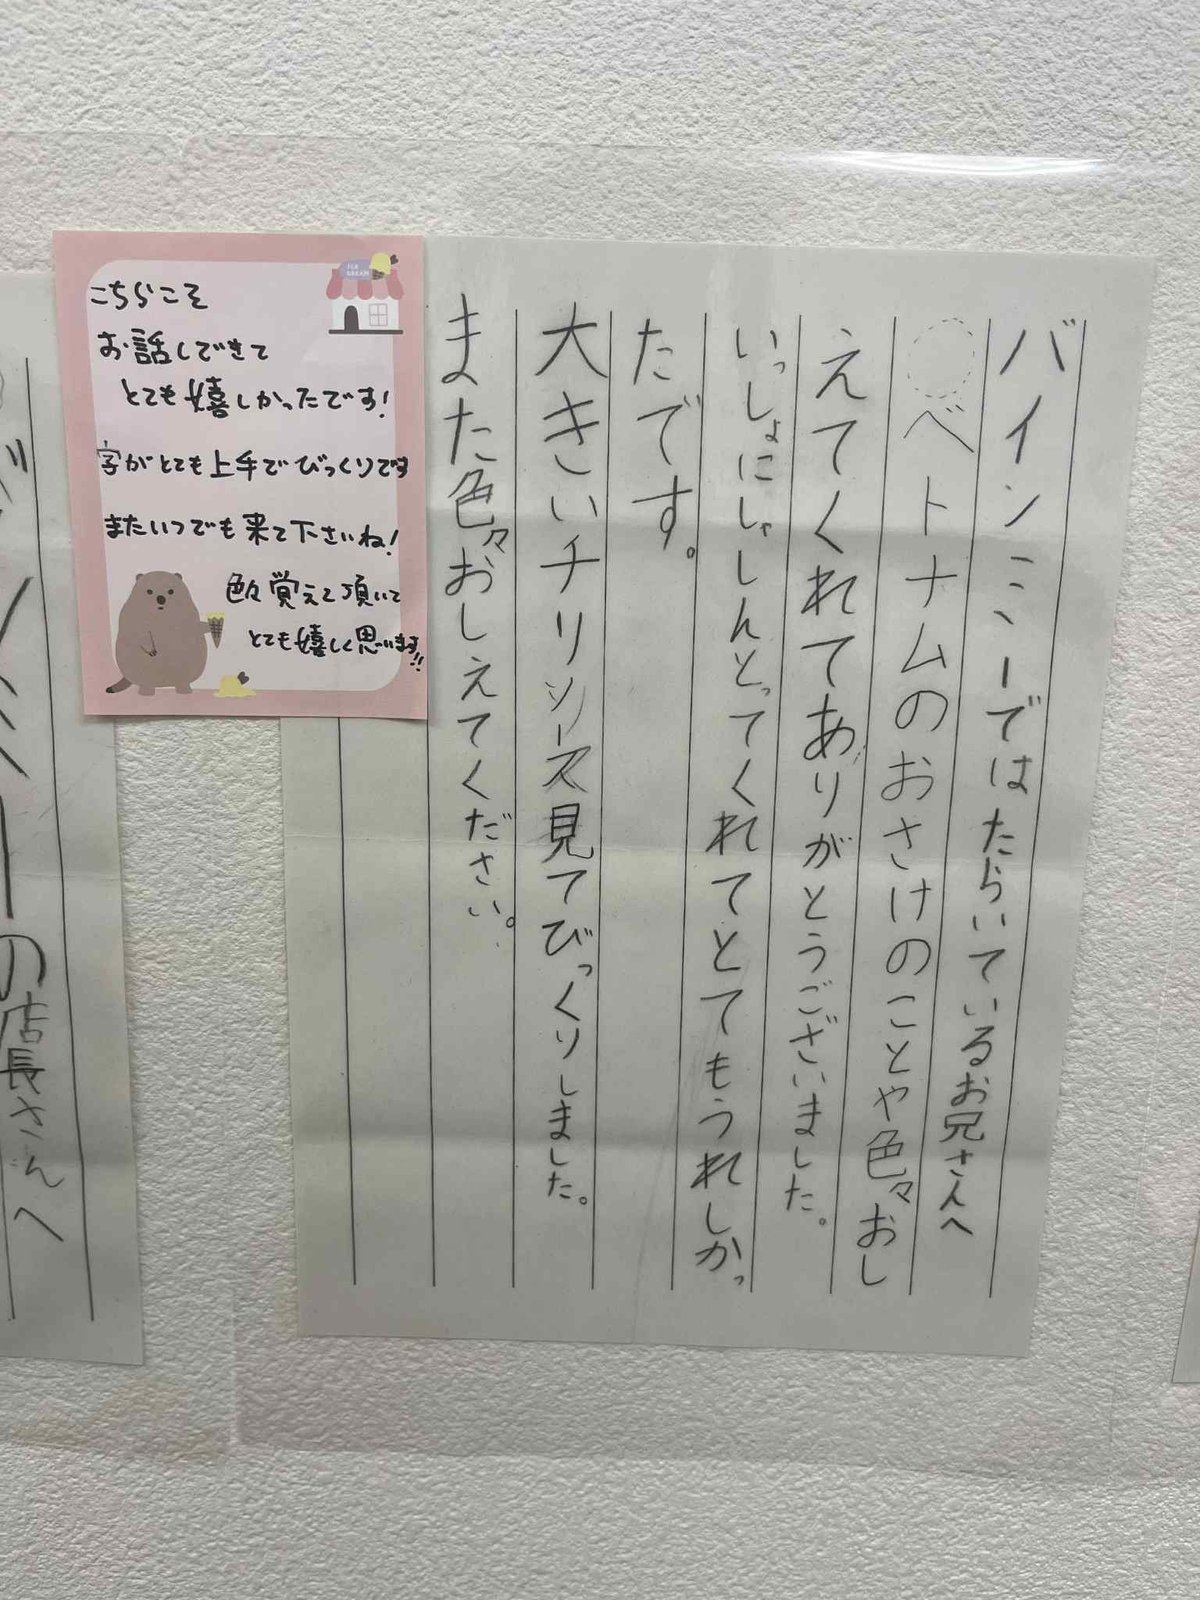 バインミーではたらいているお兄さんへ
ベトナムのおさけのことや色々おし
えてくれてありがとうございました。
いっしょにしゃしんとってくれてとてもうれしかっ
たです。
大きいチリソース見てびっくりしました。
また色々おしえてください。
ICE CREAM
こちらこそ
お話しできて
とても嬉しかったです!
字がとても上手でびっくりです
またいつでも来て下さいね!
色々覚えて頂いて
とても嬉しく思います!!
ーの店長さんへ